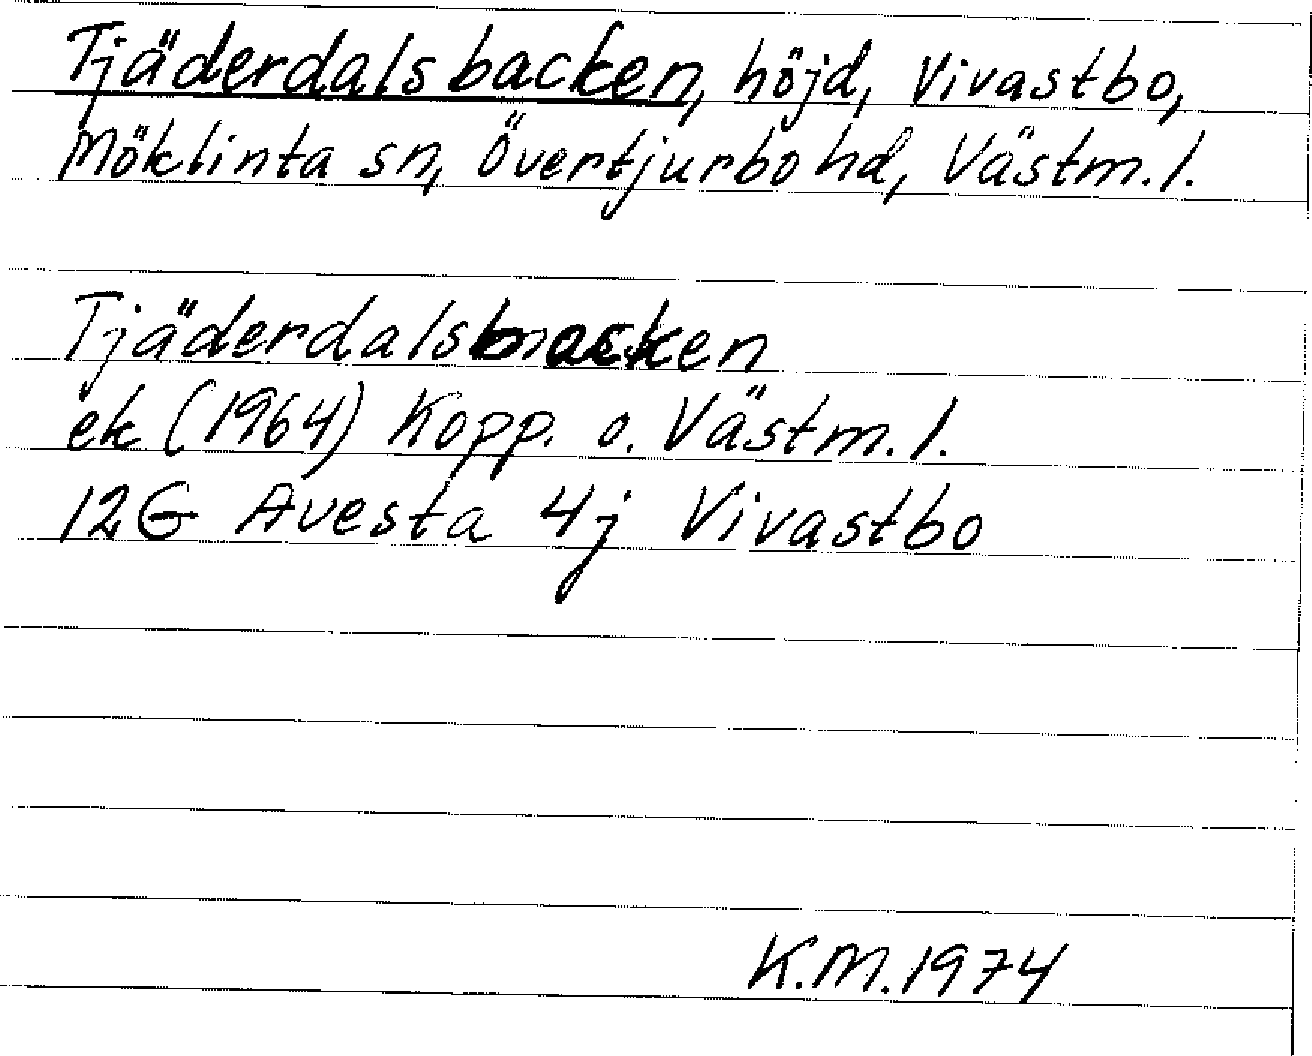 Tjäderdalsbacken, höjd, Vivastbo,
Möklinta sn, Övertjurbo hd, Västm. l.
Tjäderdalsbacken
ek (1964) Kopp. o. Västm. l.
12G Avesta 4j Vivastbo
K.M. 1974